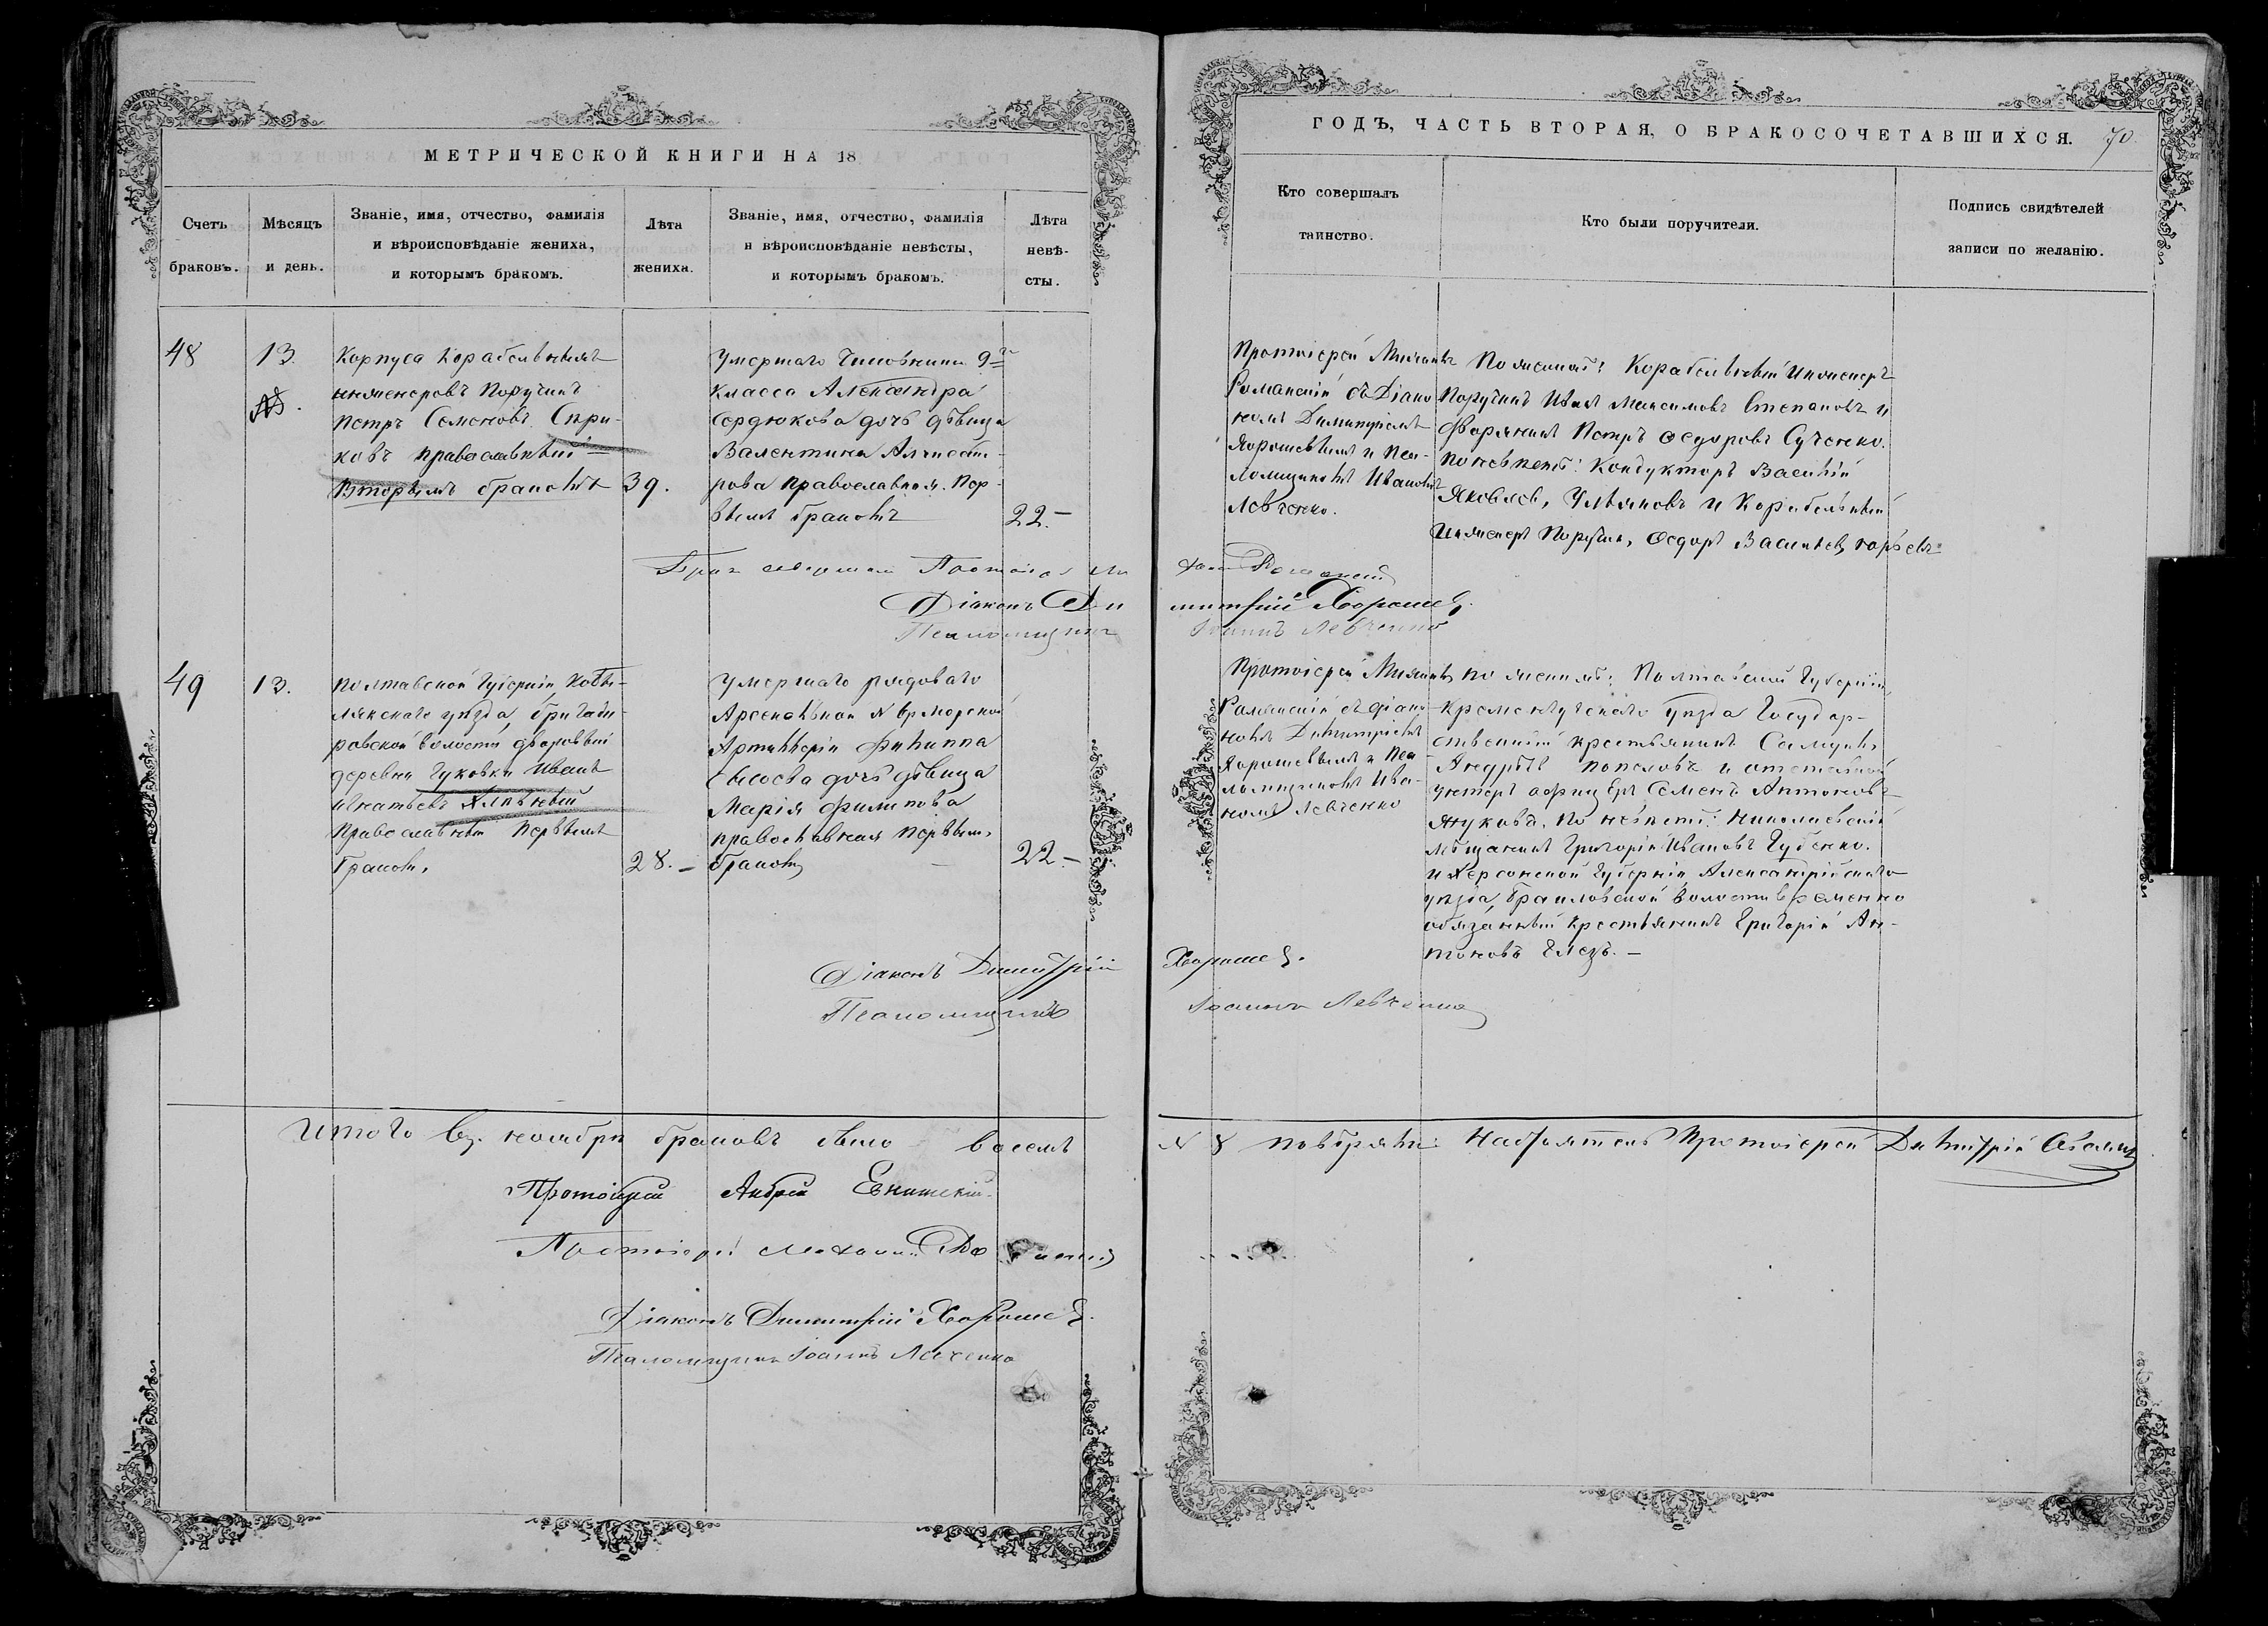 МЕТРИЧЕСКОЙ КНИГИ НА 18
Счетъ
браковъ.
Мѣсяцъ
и день.
Званіе, имя, отчество, фамилія
и вѣроисповѣданіе жениха,
и которымъ бракомъ.
Лѣта
жениха.
Званіе, имя, отчество, фамилія
и вѣроисповѣданіе невѣсты,
и которымъ бракомъ.
Лѣта
невѣ-
сты.
48
13.
Корпуса Корабельныхъ
инженеровъ Поручикъ
Петръ Семеновъ Спри-
ковъ православный
Вторымъ бракомъ
39.
Умершаго Чиновника 9го
класса Александра
Сердюкова дочь дѣвица
Валентина Александ-
рова православная. Пер-
вымъ бракомъ
22.-
Бракъ совершали Протоіерей Ми
Діаконъ Ди
Псаломщикъ
49
13.
Полтавской Губерніи, Кобы-
лякскаго уѣзда, Бригади-
ровской волости
деревни Гуковки Иванъ
Игнатьевъ
Православный Первымъ
бракомъ.
28.-
Умершаго рядоваго
Арсенальной № Морской
Артиллеріи Филиппа
Сысоева дочь дѣвица
Марія Филипова
православная первымъ
бракомъ
22.-
Діаконъ Димитрій
Псаломщикъ
Итого въ ноябрѣ браковъ было восемь
Протоіерей Андрей
Протоіерей Михаилъ Романскій
Діаконъ Димитрій Хорошев.
Псаломщикъ Іоаннъ Левченко
ГОДЪ, ЧАСТЬ ВТОРАЯ, О БРАКОСОЧЕТАВШИХСЯ.
70.
Кто совершалъ
таинство.
Кто были поручители.
Подпись свидѣтелей
записи по желанію.
Протоіерей Михаилъ
Романскій съ Діако
номъ Димитріемъ
Хорошевымъ и Пса-
ломщикомъ Иваномъ
Левченко.
По женихѣ: Корабельный Инженеръ
Поручикъ Иванъ Максимовъ Степановъ и
Дворянинъ Петръ Федоровъ Сученко.
По невѣстѣ: Кондукторъ Василій
Яковлев. Ульяновъ и Корабельный
Инженеръ Поручик. Федоръ Васильев.
хаилъ Романскій
митрій Хорошев.
Іоаннъ Левченко
Протоіерей Михаилъ
Романскій съ діако
номъ Димитріемъ
Хорошевымъ и Пса
ломщикомъ Ива-
номъ Левченко
по женихѣ: Полтавской Губерніи,
Кременчугскаго уѣзда Государ-
ственный крестьянинъ Самуилъ
Андреевъ Поповъ и отставной
унтеръ офицеръ Семенъ Антоновъ
Жуковъ. По невѣстѣ: Николаевскій
мѣщанинъ Григорій Ивановъ Губенко.
и Херсонской Губерніи Александрійскаго
уѣзда, Браиловской Волости временно
обязанный крестьянинъ Григорій Ан-
тоновъ
Хорошев.
Іоаннъ Левченко
№ 8 повѣряли: Настоятель Протоіерей Димитрій